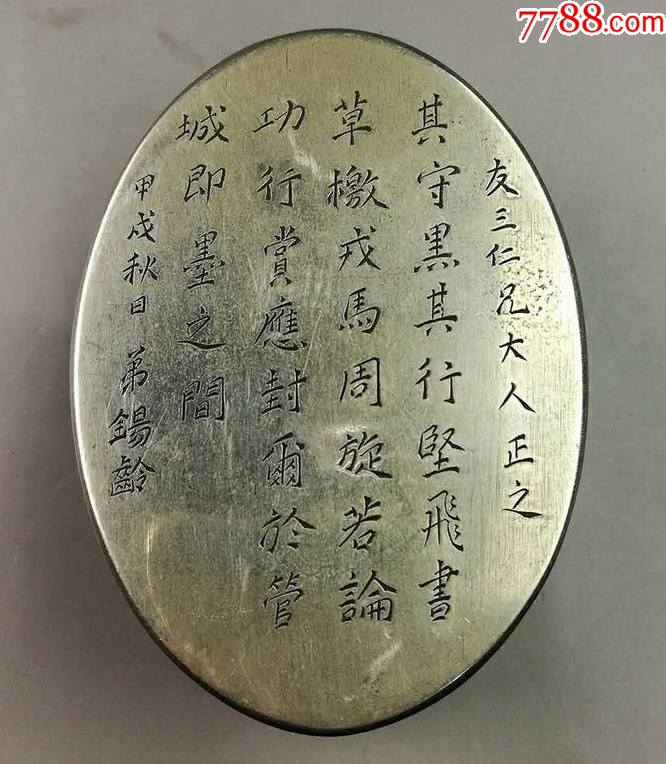 7788.com
友三仁兄大人正之
其守黑其行堅飛書
草檄戎馬周旋若論
功行賞應封爾於管
城即墨之間
甲戌秋日 弟錫齡